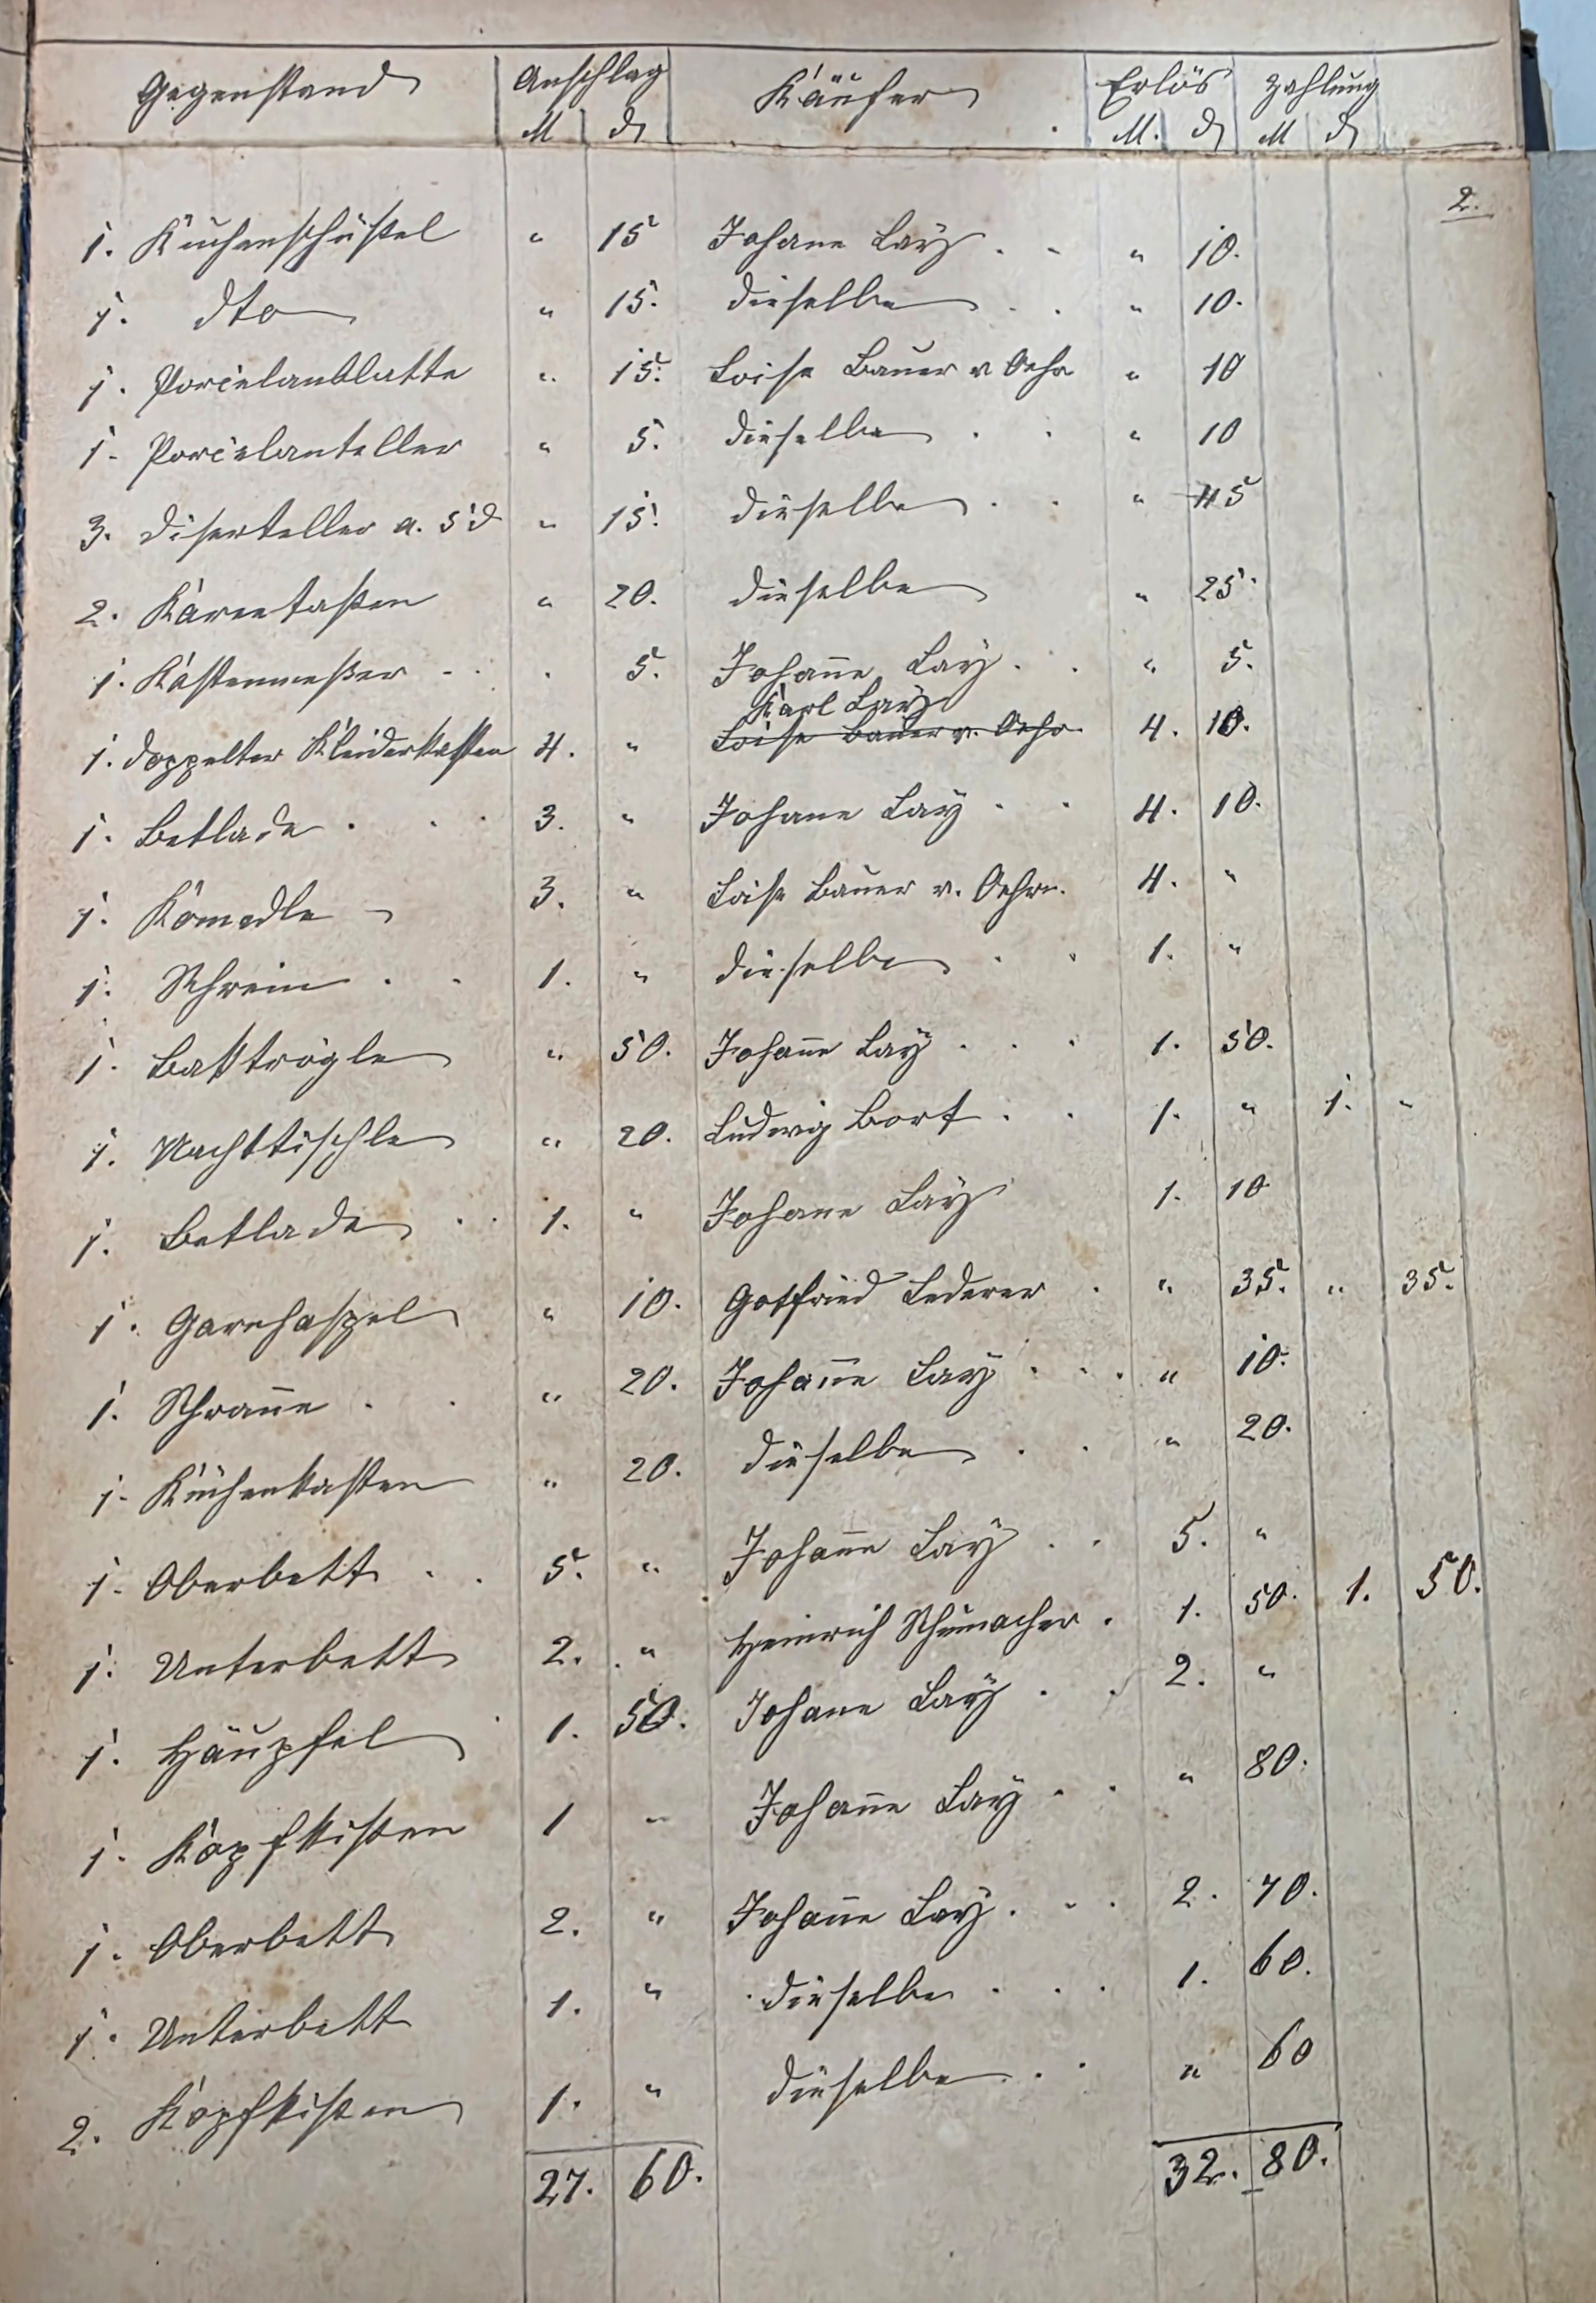 Gegenstand Anschlag Käufer Erlös Zahlung
M ₰ M. ₰ M ₰
2.
1. Küchenschüßel " 15 Johane Lay . . " 10.
1. dto " 15. dieselbe . . " 10.
1. Porcelanblatte " 15. Loise Bauer v. Oehr " 10
1. Porcelanteller " 5. dieselbe . . " 10
3. Diserteller a. 5 ₰ " 15. dieselbe . . " 45
2. " 20. dieselbe " 25.
1. Kastenmeßer . . . 5. Johañe Lay . . " 5.
Karl Lay
1. doppelter Kleiderkasten 4. " Loise Bauer v. Oehr. 4. 10.
1. Betlade . . . 3. " Johane Lay . . 4. 10.
1. Komodle 3. " Loise Bauer v. Oehrn. 4. "
1. Schrein . . 1. " dieselbe . . 1. "
1. Baktrögle " 50. Johañe Lay . . . 1. 50.
1. Nachttischle " 20. Ludwig Bort . . 1. " 1. "
1. Betlade . . 1. " Johane Lay 1. 10
1. Garnhaspel " 10. Gotfried Lederer . " 35. " 35.
1. Schrañe . . " 20. Johañe Lay . . . " 10.
1. Küchenkasten " 20. dieselbe . . " 20.
1. Oberbett . . 5. " Johañe Lay . . 5. "
1. Unterbett 2. " Heinrich Schumacher . 1. 50. 1. 50.
1. Häupfel 1. 50. Johane Lay . . 2. "
1. Kopfkißen 1 " Johañe Lay . . " 80.
1. Oberbett 2. " Johañe Lay . . . 2. 70.
1. Unterbett 1. " dieselbe . . . 1. 60.
2. Kopfkißen 1. " dieselbe . . " 60
27. 60. 32. 80.